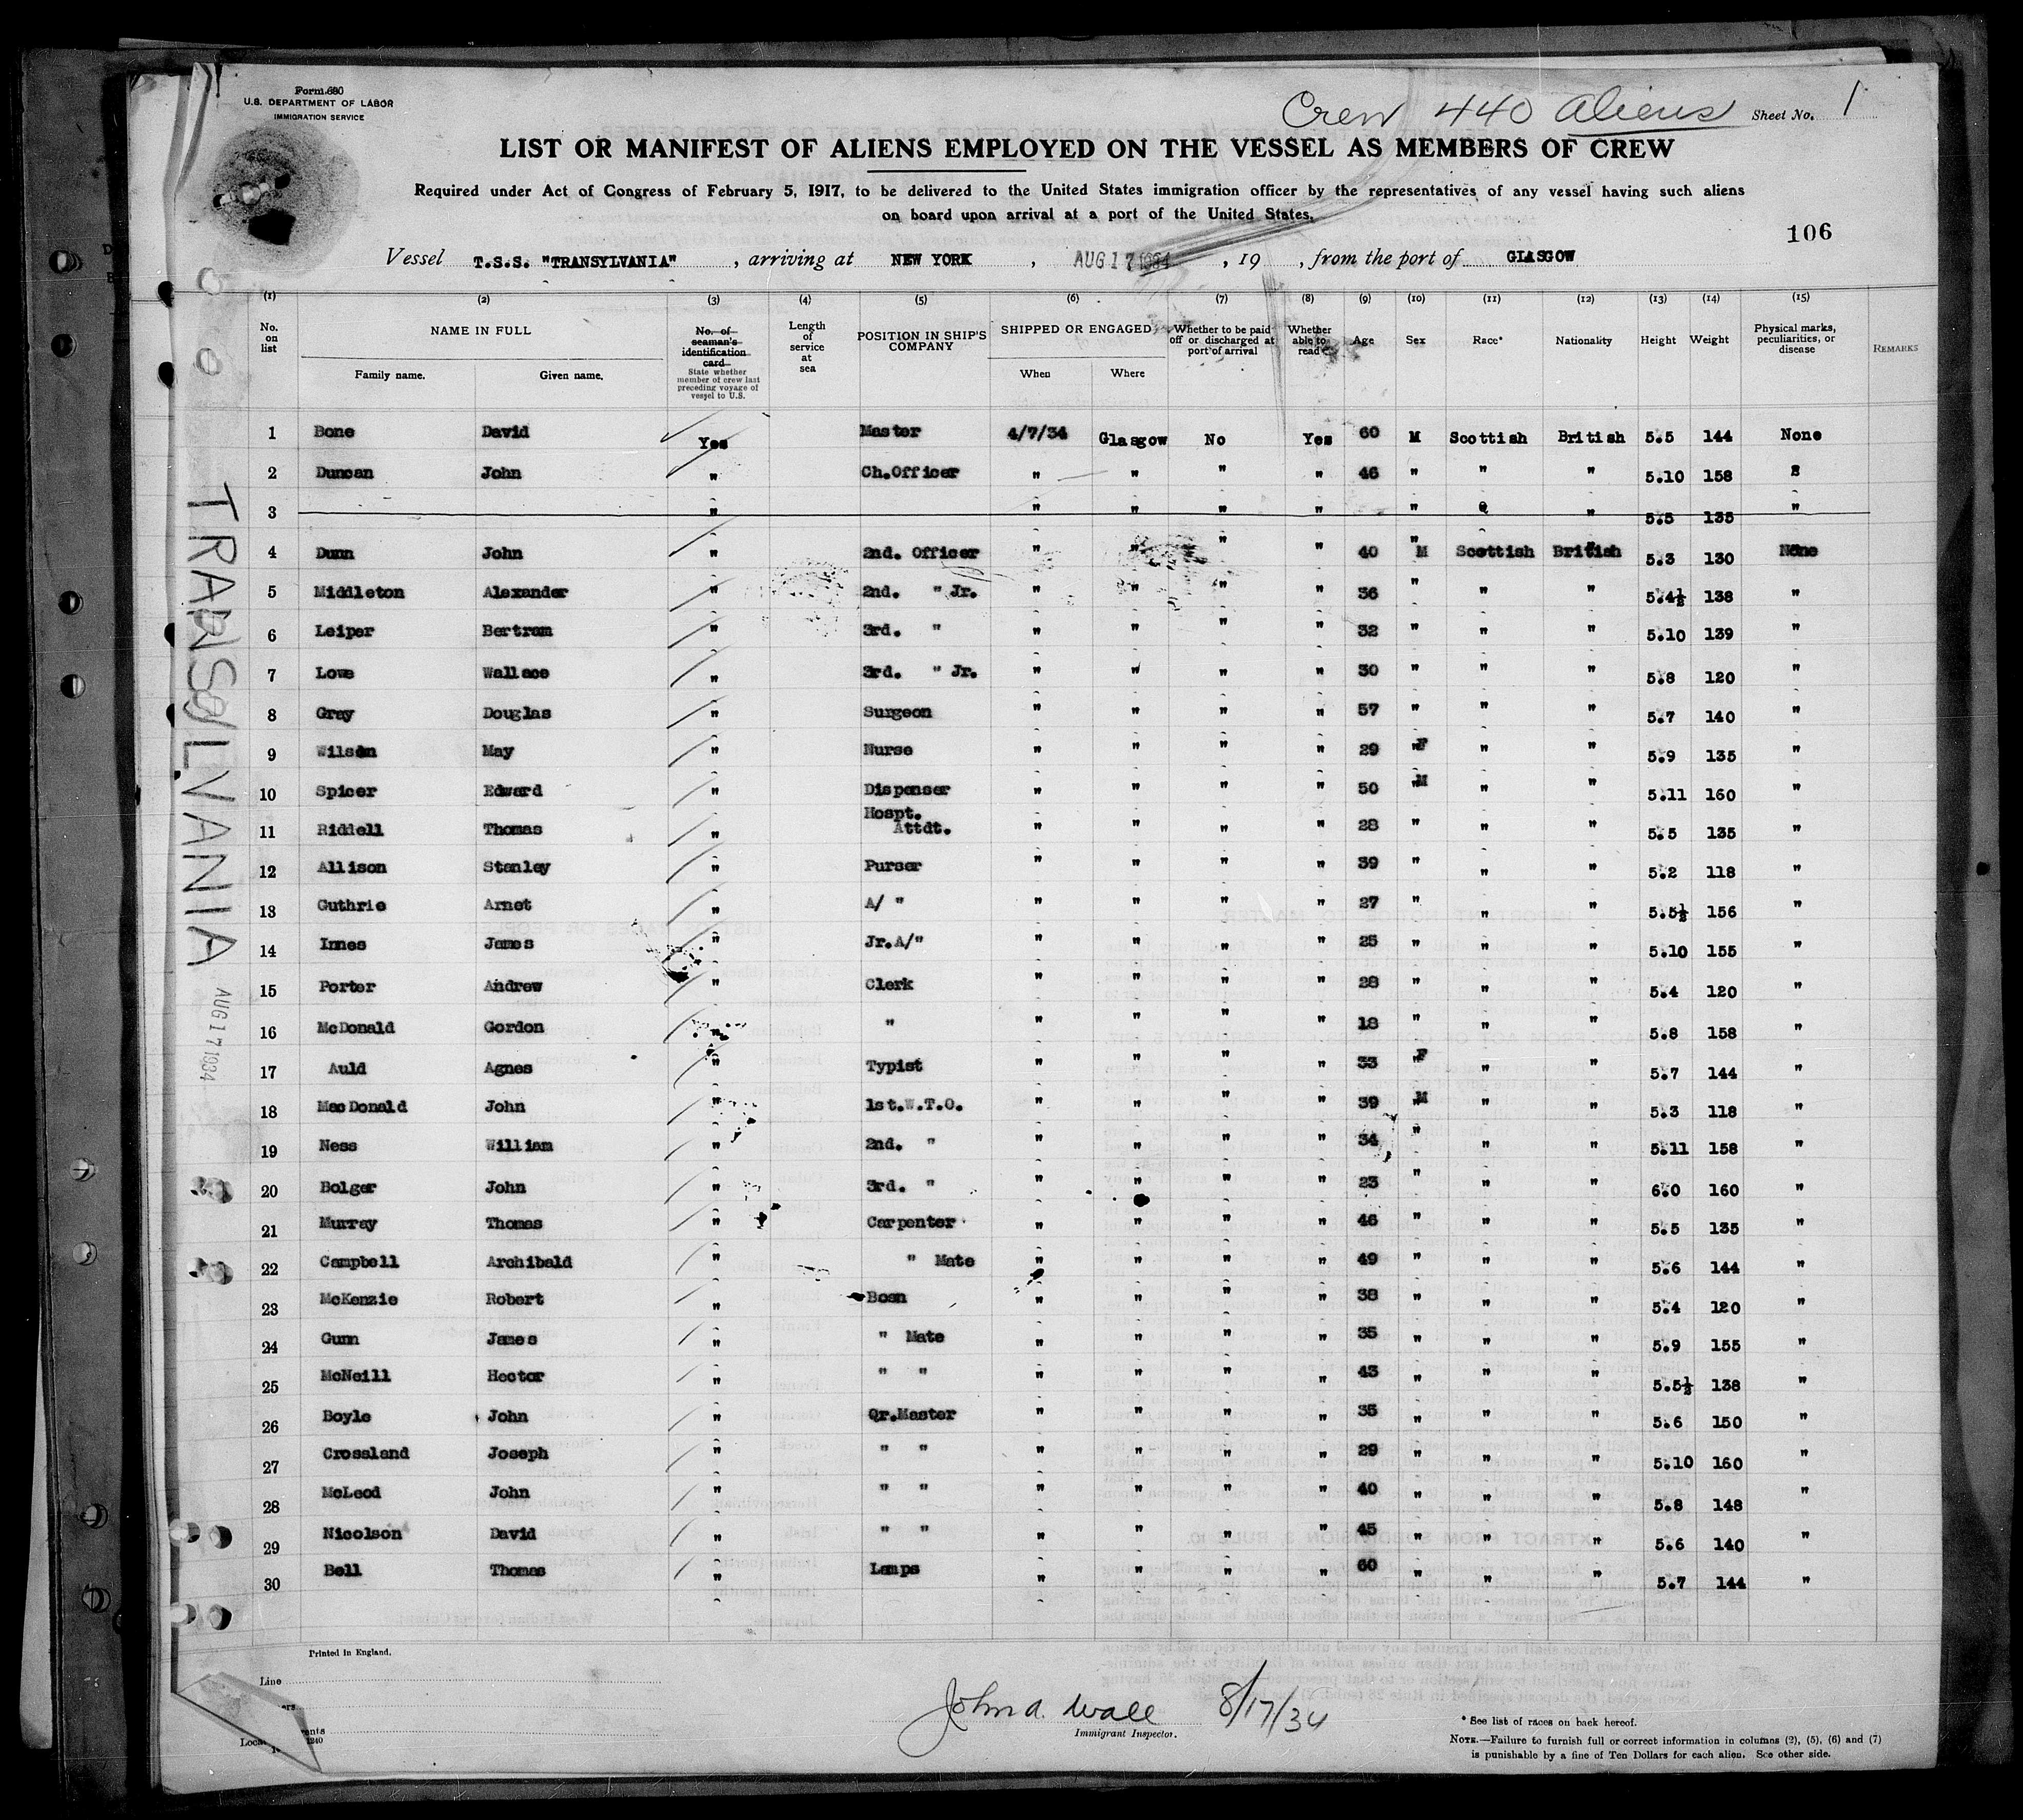 Form 680
U.S. DEPARTMENT OF LABOR
IMMIGRATION SERVICE
Crew 440 aliens
Sheet No. 1
LIST OR MANIFEST OF ALIENS EMPLOYED ON THE VESSEL AS MEMBERS OF CREW
Required under Act of Congress of February 5, 1917, to be delivered to the United States immigration officer by the representatives of any vessel having such aliens
on board upon arrival at a port of the United States.
106
Vessel T.S.S. "TRANSYLVANIA", arriving at NEW YORK, AUG 17 1934, 19 , from the port of GLASGOW
(1) (2) (3) (4) (5) (6) (7) (8) (9) (10) (11) (12) (13) (14) (15)
No. on list NAME IN FULL Family name. Given name. No. of seaman's identification card State whether member of crew last preceding voyage of vessel to U.S. Length of service at sea POSITION IN SHIP'S COMPANY SHIPPED OR ENGAGED When Where Whether to be paid off or discharged at port of arrival Whether able to read Age Sex Race* Nationality Height Weight Physical marks, peculiarities, or disease REMARKS
1 Bone David Yes Master 4/7/34 Glasgow No Yes 60 M Scottish British 5.5 144 None
2 Duncan John " Ch.Officer " " " " 46 " " " 5.10 158
3 " " " " " " " 5.5 135 "
4 Dunn John " 2nd. Officer " " " " 40 M Scottish British 5.3 130 None
5 Middleton Alexander " 2nd. " Jr. " " " " 36 " " " 5.4½ 138 "
6 Leiper Bertram " 3rd. " " " " " 32 " " " 5.10 139 "
7 Lowe Wallace " 3rd. " Jr. " " " " 30 " " " 5.8 120 "
8 Gray Douglas " Surgeon " " " " 57 " " " 5.7 140 "
9 Wilson May " Nurse " " " " 29 F " " 5.9 135 "
10 Spicer Edward " Dispenser " " " " 50 M " " 5.11 160 "
11 Riddell Thomas " Hospt. Attdt. " " " " 28 " " " 5.5 135 "
12 Allison Stanley " Purser " " " " 39 " " " 5.2 118 "
13 Guthrie Arnet " A/ " " " " " 27 " " " 5.5½ 156 "
14 Innes James " Jr.A/" " " " " 25 " " " 5.10 155 "
15 Porter Andrew " Clerk " " " " 28 " " " 5.4 120 "
16 McDonald Gordon " " " " " " 18 " " " 5.8 158 "
17 Auld Agnes " Typist " " " " 33 F " " 5.7 144 "
18 MacDonald John " 1st.W.T.O. " " " " 39 M " " 5.3 118 "
19 Ness William " 2nd. " " " " " 34 " " " 5.11 158 "
20 Bolger John " 3rd. " " " " " 23 " " " 6.0 160 "
21 Murray Thomas " Carpenter " " " " 46 " " " 5.5 135 "
22 Campbell Archibald " " Mate " " " " 49 " " " 5.6 144 "
23 McKenzie Robert " Bosn " " " " 38 " " " 5.4 120 "
24 Gunn James " " Mate " " " " 35 " " " 5.9 155 "
25 McNeill Hector " " " " " " " 43 " " " 5.5½ 138 "
26 Boyle John " Qr.Master " " " " 35 " " " 5.6 150 "
27 Crossland Joseph " " " " " " " 29 " " " 5.10 160 "
28 McLeod John " " " " " " " 40 " " " 5.8 148 "
29 Nicolson David " " " " " " " 45 " " " 5.6 140 "
30 Bell Thomas " Lamps " " " " 60 " " " 5.7 144 "
TRANSYLVANIA
AUG 17 1934
Printed in England.
Line
John A. Wall 8/17/34
Immigrant Inspector.
* See list of races on back hereof.
NOTE.—Failure to furnish full or correct information in columns (2), (5), (6) and (7)
is punishable by a fine of Ten Dollars for each alien. See other side.